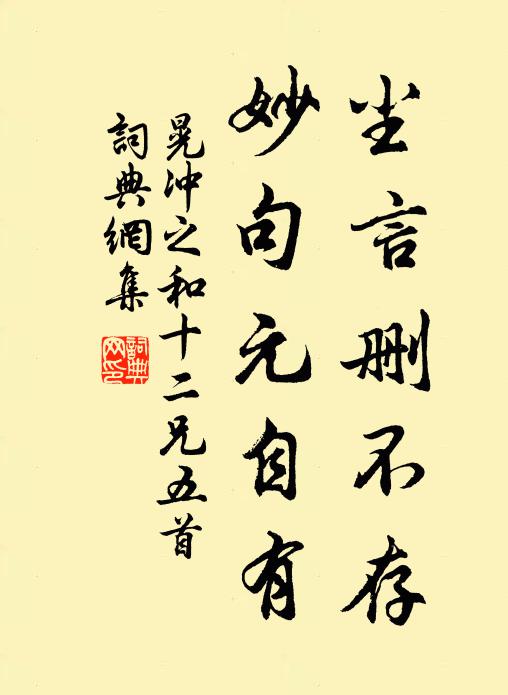 尘言删不存
妙句元自有
晁冲之和十二兄五首
詞典網集
詞典網印